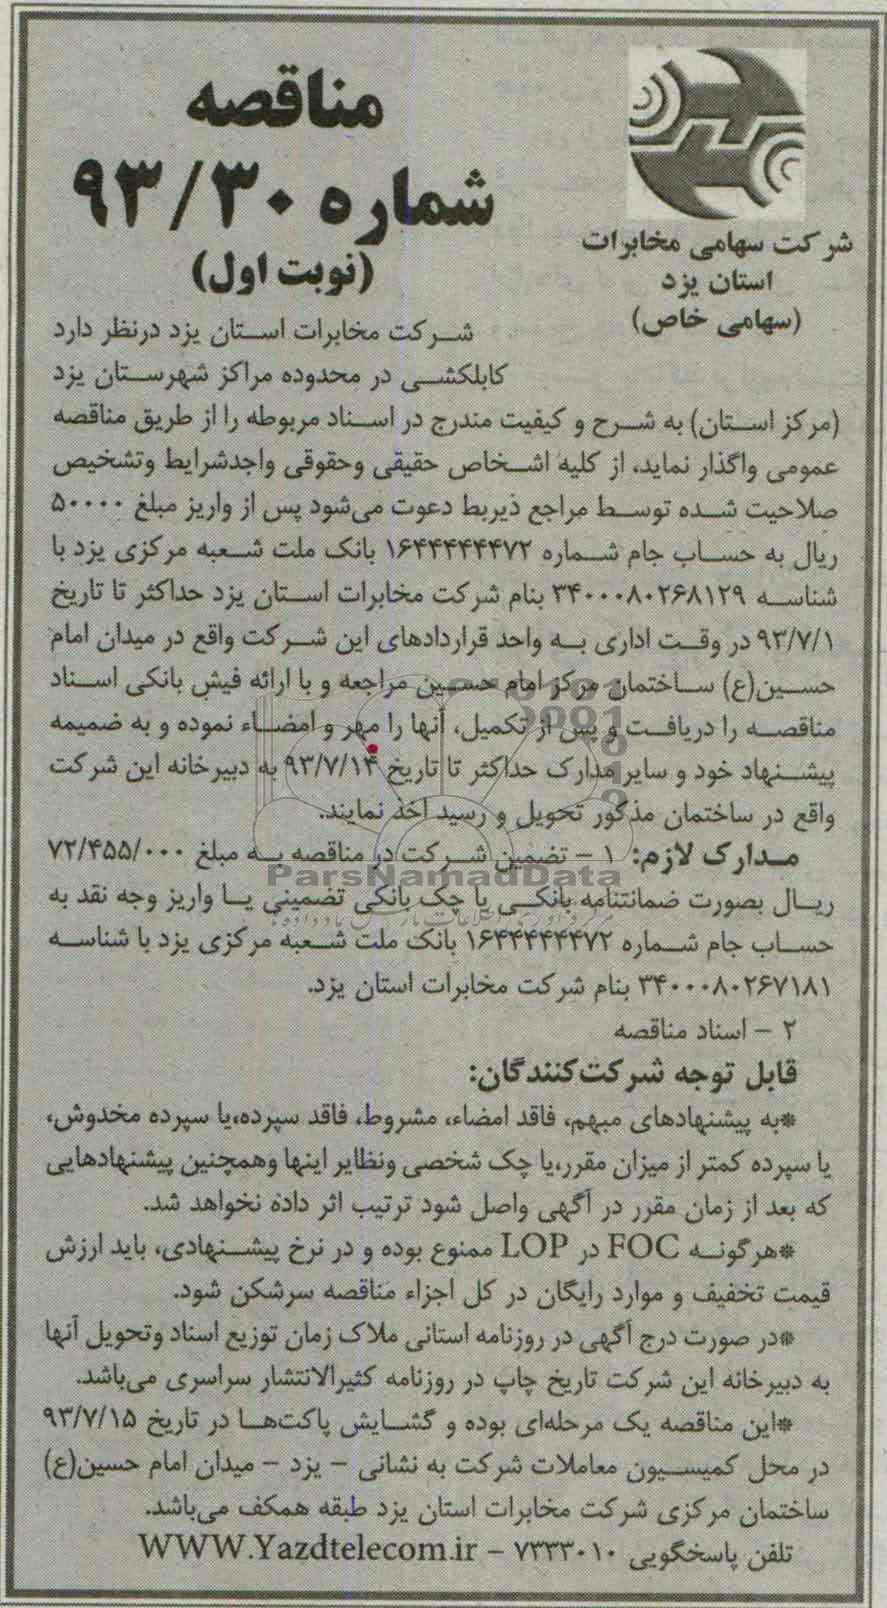 مناقصه
شماره ۹۳/۳۰
(نوبت اول)
شرکت سهامی مخابرات
استان یزد
(سهامی خاص)
شرکت مخابرات استان یزد درنظر دارد
کابلکشی در محدوده مراکز شهرستان یزد
(مرکز استان) به شرح و کیفیت مندرج در اسناد مربوطه را از طریق مناقصه
عمومی واگذار نماید، از کلیه اشخاص حقیقی وحقوقی واجدشرایط وتشخیص
صلاحیت شده توسط مراجع ذیربط دعوت می‌شود پس از واریز مبلغ ۵۰۰۰۰
ریال به حساب جام شماره ۱۶۴۴۴۴۴۴۷۲ بانک ملت شعبه مرکزی یزد با
شناسه ۳۴۰۰۰۸۰۲۶۸۱۲۹ بنام شرکت مخابرات استان یزد حداکثر تا تاریخ
۹۳/۷/۱ در وقت اداری به واحد قراردادهای این شرکت واقع در میدان امام
حسین(ع) ساختمان مرکز امام حسین مراجعه و با ارائه فیش بانکی اسناد
مناقصه را دریافت و پس از تکمیل، آنها را مهر و امضاء نموده و به ضمیمه
پیشنهاد خود و سایر مدارک حداکثر تا تاریخ ۹۳/۷/۱۴ به دبیرخانه این شرکت
واقع در ساختمان مذکور تحویل و رسید اخذ نمایند.
مدارک لازم: ۱ – تضمین شرکت در مناقصه به مبلغ ۷۲/۴۵۵/۰۰۰
ParsNamadData
ریال بصورت ضمانتنامه بانکی یا چک بانکی تضمینی یا واریز وجه نقد به
حساب جام شماره ۱۶۴۴۴۴۴۴۷۲ بانک ملت شعبه مرکزی یزد با شناسه
۳۴۰۰۰۸۰۲۶۷۱۸۱ بنام شرکت مخابرات استان یزد.
۲ – اسناد مناقصه
قابل توجه شرکت‌کنندگان:
*به پیشنهادهای مبهم، فاقد امضاء، مشروط، فاقد سپرده،یا سپرده مخدوش،
یا سپرده کمتر از میزان مقرر،یا چک شخصی ونظایر اینها وهمچنین پیشنهادهایی
که بعد از زمان مقرر در آگهی واصل شود ترتیب اثر داده نخواهد شد.
*هرگونه FOC در LOP ممنوع بوده و در نرخ پیشنهادی، باید ارزش
قیمت تخفیف و موارد رایگان در کل اجزاء مناقصه سرشکن شود.
*در صورت درج آگهی در روزنامه استانی ملاک زمان توزیع اسناد وتحویل آنها
به دبیرخانه این شرکت تاریخ چاپ در روزنامه کثیرالانتشار سراسری می‌باشد.
*این مناقصه یک مرحله‌ای بوده و گشایش پاکت‌ها در تاریخ ۹۳/۷/۱۵
در محل کمیسیون معاملات شرکت به نشانی – یزد – میدان امام حسین(ع)
ساختمان مرکزی شرکت مخابرات استان یزد طبقه همکف می‌باشد.
تلفن پاسخگویی ۷۳۳۳۰۱۰ – WWW.Yazdtelecom.ir